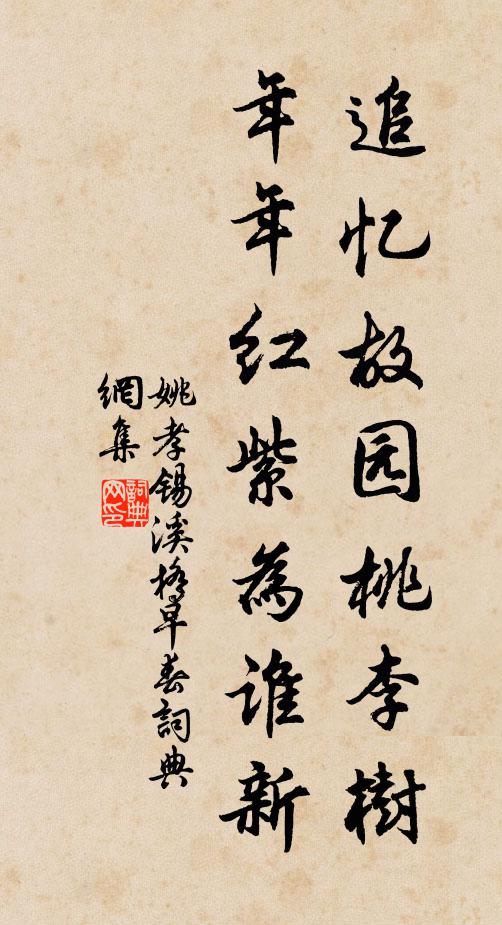 追忆故园桃李樹
年年红紫為谁新
姚孝锡溪橋早春詞典
網集
詞典
网印